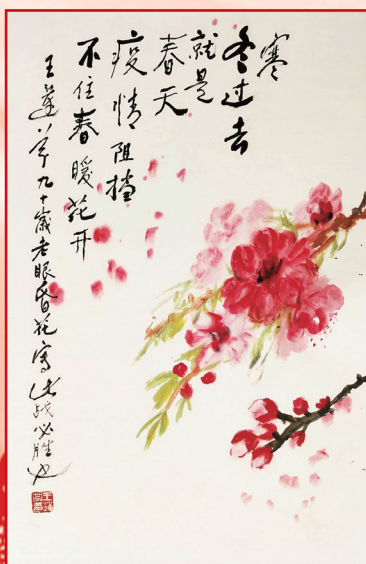 寒
冬过去
就是
春天
疫情阻挡
不住春暖花开
王莲 九十岁老眼昏花写 此战必胜也